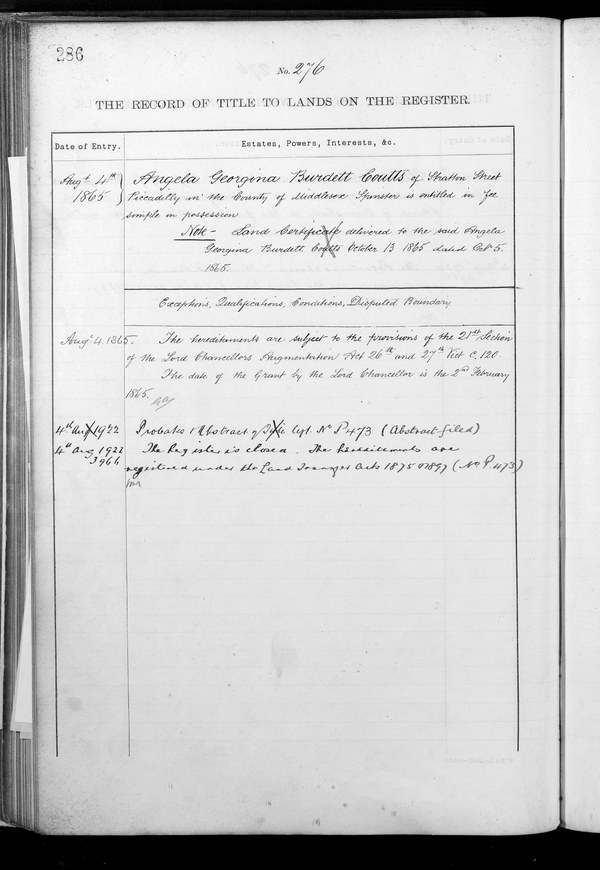 286
No. 276
THE RECORD OF TITLE TO LANDS ON THE REGISTER.
Date of Entry.
Estates, Powers, Interests, &c.
Augt. 4th 1865
Angela Georgina Burdett Coutts of Stratton Street
Piccadilly in the County of Middlesex Spinster is entitled in fee
simple in possession
Note - Land Certificate delivered to the said Angela
Georgina Burdett Coutts October 13 1865 dated Oct. 5.
1865.
Exceptions, Qualifications, Conditions, Disputed Boundary
Augt. 4. 1865.
The hereditaments are subject to the provisions of the 21st Section
of the Lord Chancellors Augmentation Act 26th and 27th Vict c. 120.
The date of the Grant by the Lord Chancellor is the 2nd February
1865.
4th Aug 1922
Probates & Abstract of Title Regd. No P473 (Abstract filed)
4th Aug 1922
The Register is closed. The hereditaments are
3966
registered under the Land Transfer Acts 1875 & 1897 (No P.473)